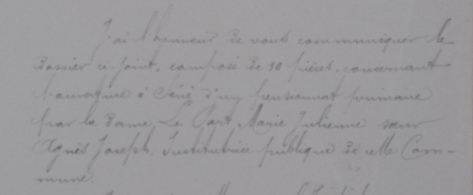 J'ai l'honneur de vous communiquer le
dossier ci-joint, composé de 10 pièces, concernant
l'ouverture à Séné d'un pensionnat primaire
par la dame Le Gart, Marie Julienne sœur
Agnès Joseph, Institutrice publique de cette Com-
mune.